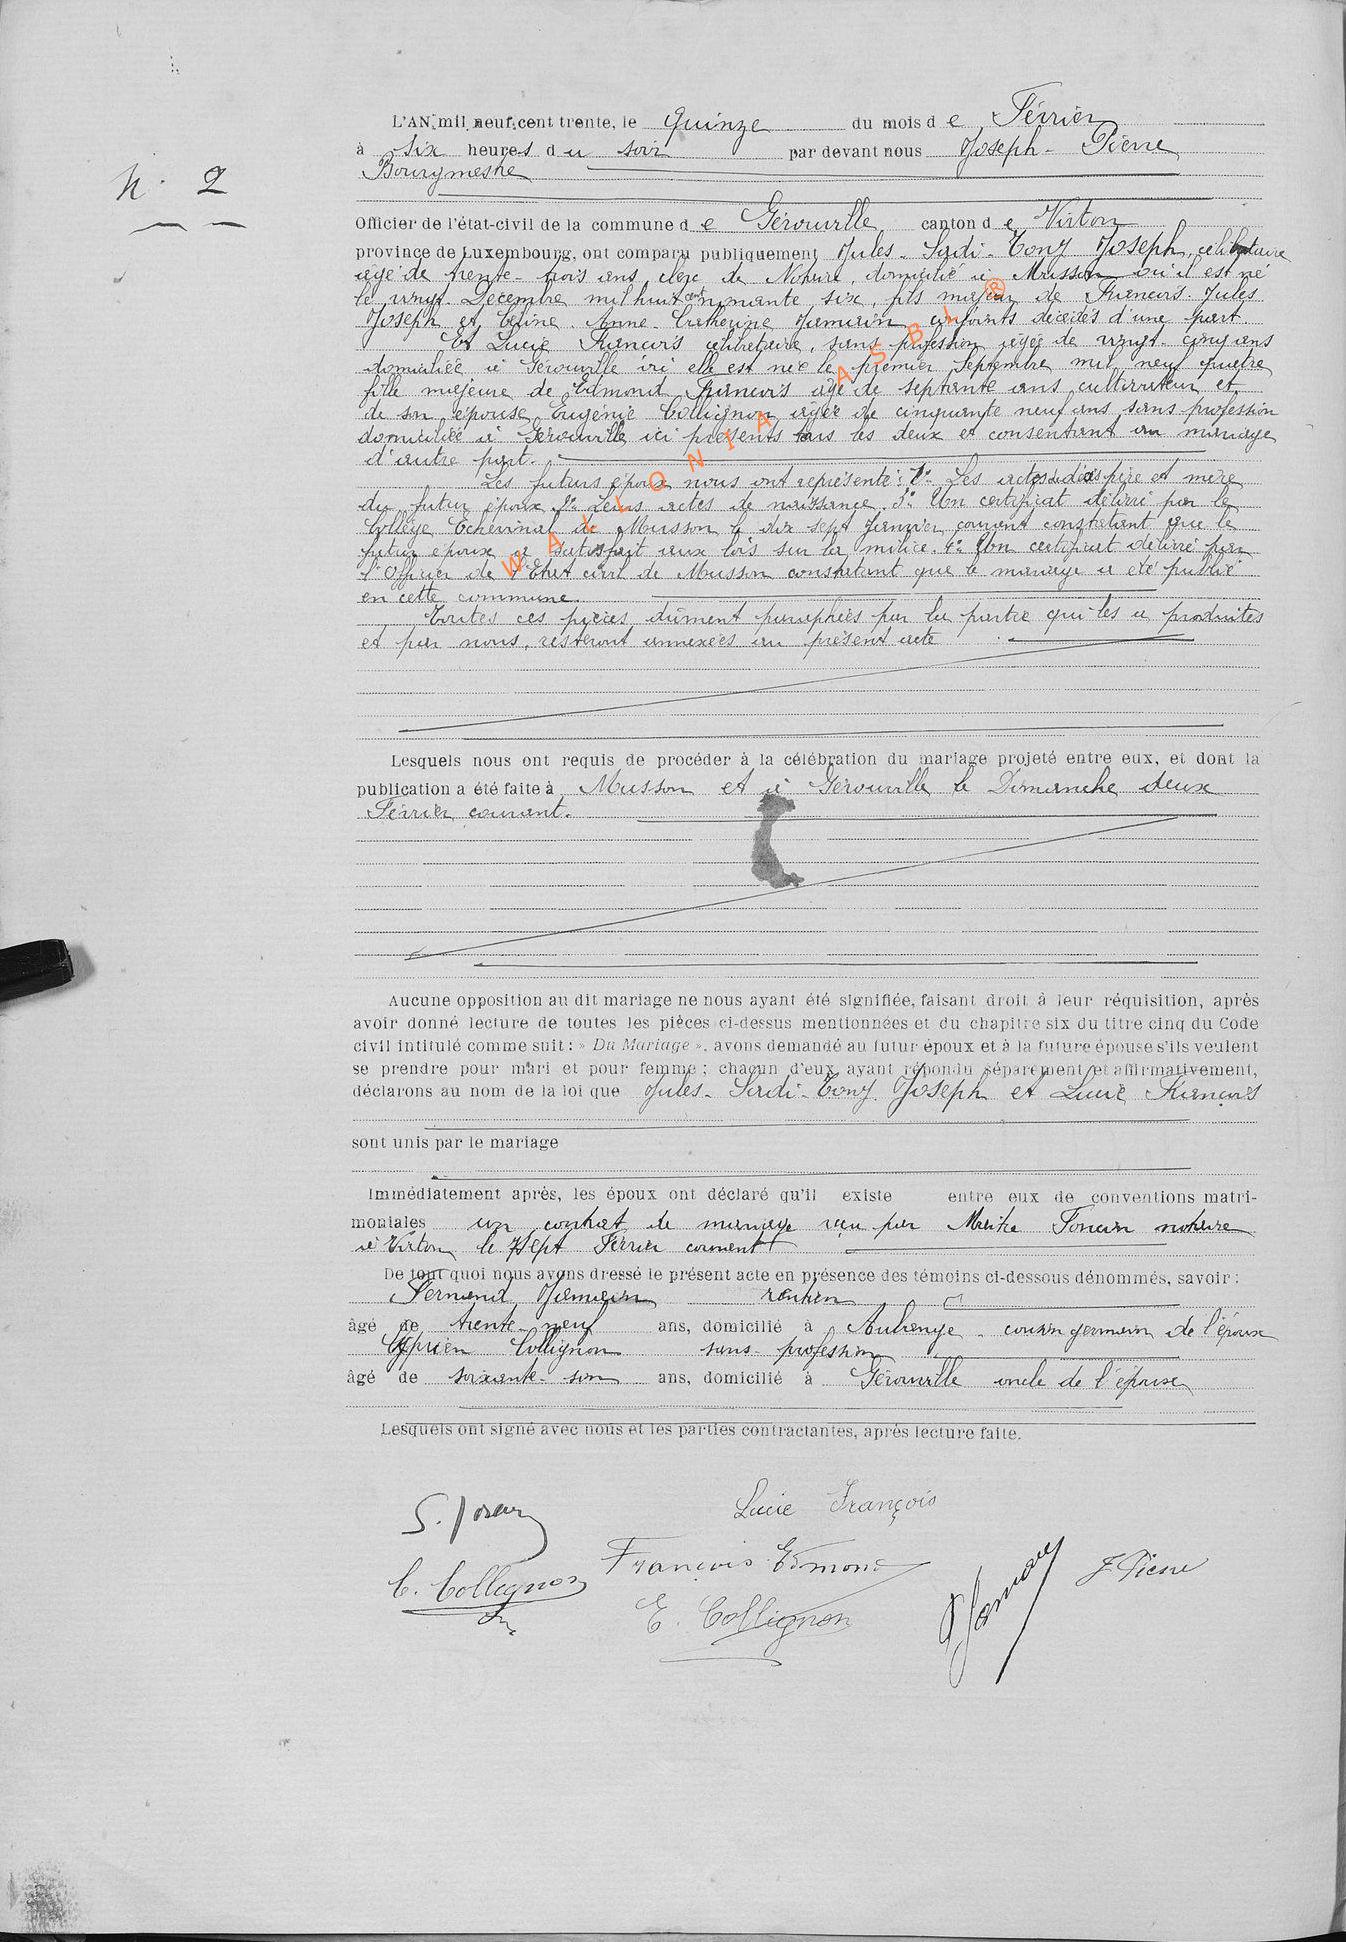 N° 2
L'AN mil neuf cent trente, le quinze du mois de Février
à six heures du soir par devant nous Joseph Pierre
Bourgmestre
Officier de l'état-civil de la commune de Gérouville canton de Virton
province de Luxembourg, ont comparu publiquement Jules - Sadi - Tony Joseph, célibataire
âgé de trente-trois ans, clerc de Notaire, domicilié à Musson où il est né
le vingt Décembre mil huit cent nonante six, fils majeur de François Jules
Joseph et Céline Anne Catherine Jamin conjoints décédés d'une part.
Et Lucie François célibataire, sans profession âgée de vingt-cinq ans
domiciliée à Gérouville ici elle est née le premier Septembre mil neuf quatre
fille majeure de Edmond François âgé de septante ans cultivateur et
de son épouse Eugénie Collignon âgée de cinquante neuf ans, sans profession
domiciliée à Gérouville ici présents tous les deux et consentant au mariage
d'autre part.
Les futurs époux nous ont représenté : 1° Les actes de décès père et mère
du futur époux 2° Leurs actes de naissance. 3° Un certificat délivré par le
Collège Echevinal de Musson le dix sept Janvier courant constatant que le
futur époux a satisfait aux lois sur la milice. 4° Un certificat délivré par
l'Officier de l'Etat civil de Musson constatant que le mariage a été publié
en cette commune.
Toutes ces pièces, dûment paraphées par la partie qui les a produites
et par nous, resteront annexées au présent acte
WALLONIA ASBL ®
Lesquels nous ont requis de procéder à la célébration du mariage projeté entre eux, et dont la
publication a été faite à Musson et à Gérouville le Dimanche deux
Février courant.
Aucune opposition au dit mariage ne nous ayant été signifiée, faisant droit à leur réquisition, après
avoir donné lecture de toutes les pièces ci-dessus mentionnées et du chapitre six du titre cinq du Code
civil intitulé comme suit : « Du Mariage », avons demandé au futur époux et à la future épouse s'ils veulent
se prendre pour mari et pour femme ; chacun d'eux ayant répondu séparément et affirmativement,
déclarons au nom de la loi que Jules - Sadi - Tony Joseph et Lucie François
sont unis par le mariage
Immédiatement après, les époux ont déclaré qu'il existe entre eux de conventions matri-
moniales un contrat de mariage reçu par Maître Foncin notaire
à Virton le sept Février courant
De tout quoi nous avons dressé le présent acte en présence des témoins ci-dessous dénommés, savoir :
Fernand Jamin rentier
âgé de trente-neuf ans, domicilié à Aubange - cousin germain de l'époux
Cyprien Collignon sans profession
âgé de soixante- ans, domicilié à Gérouville oncle de l'épouse
Lesquels ont signé avec nous et les parties contractantes, après lecture faite.
Lucie François
François Edmond
C. Collignon
E. Collignon
J. Pierre